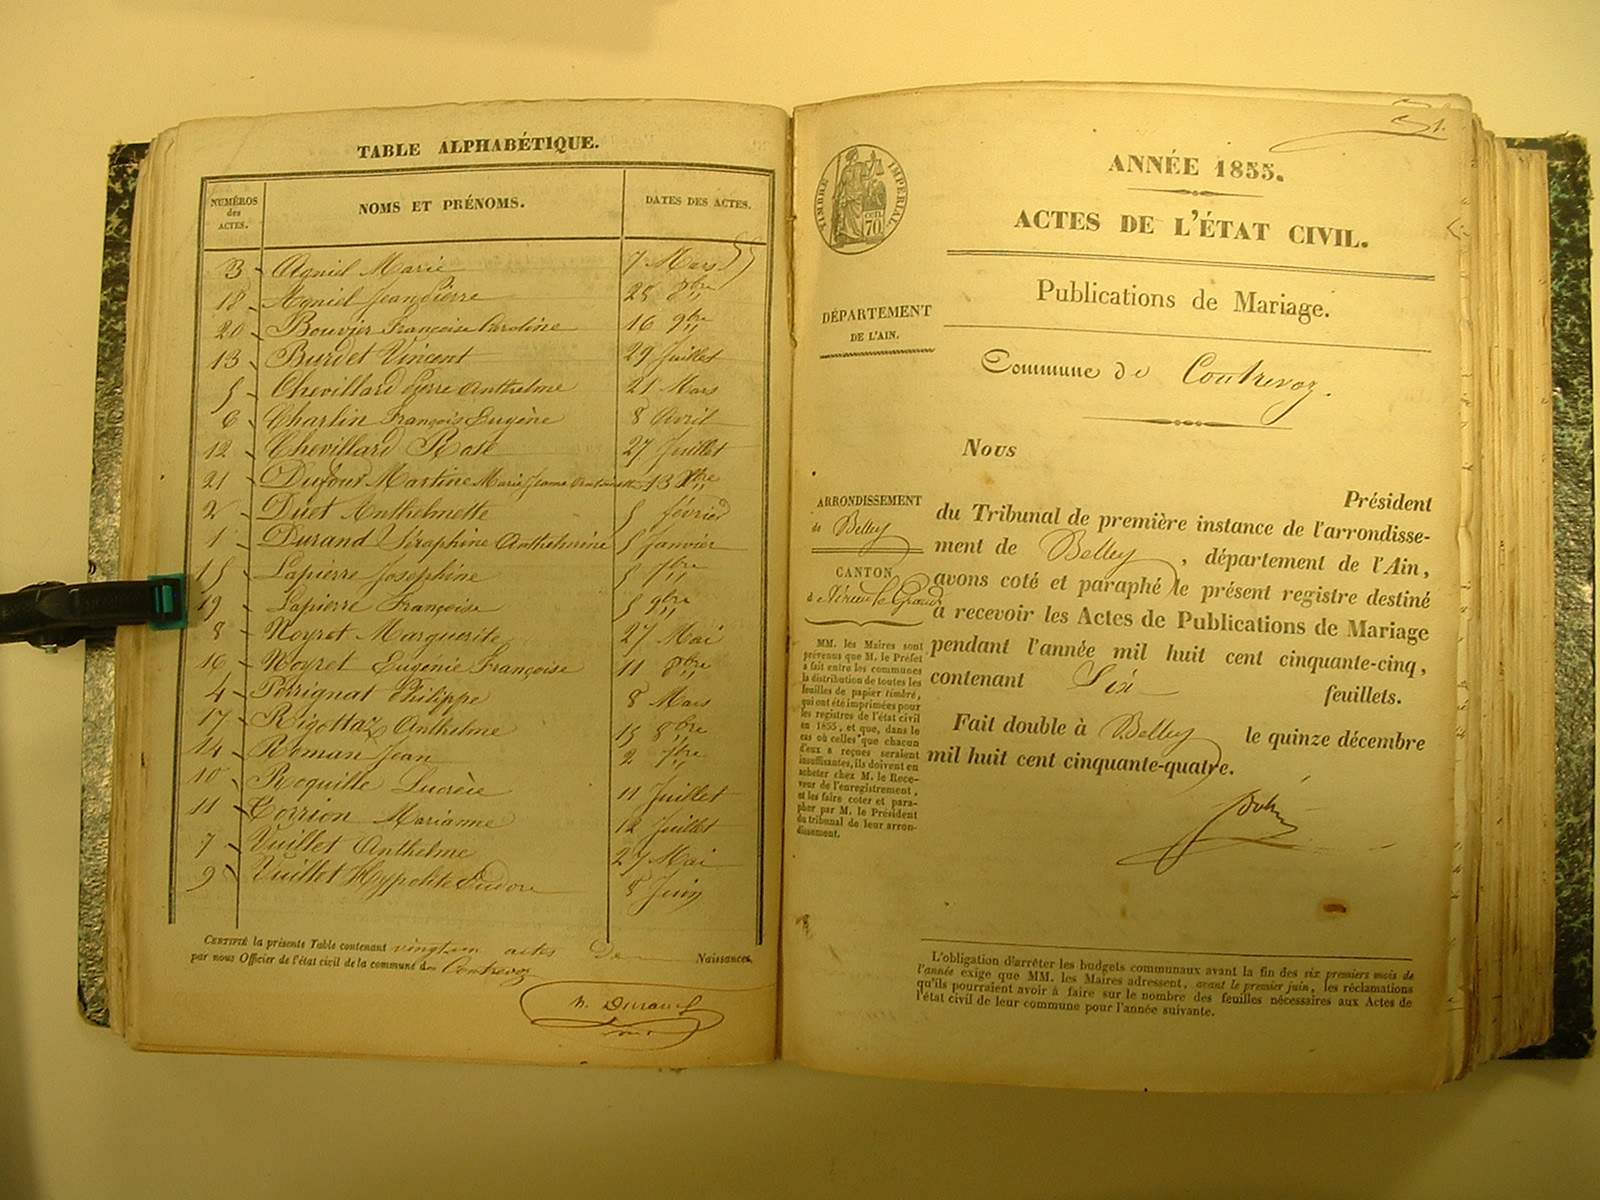 TABLE ALPHABÉTIQUE.
NUMÉROS des ACTES. NOMS ET PRÉNOMS. DATES DES ACTES.
3 Agniel Marie 7 Mars 55
18 Agniel Jean Pierre 28 8bre
20 Bouvier Françoise Caroline 16 9bre
13 Burdet Vincent 29 Juillet
5 Chevillard Pierre Anthelme 21 Mars
6 Charlin François Eugène 8 Avril
12 Chevillard Rose 27 Juillet
21 Dufour Martine Marie Jeanne 13 Xbre
2 Duet Anthelmette 5 février
1 Durand Séraphine Anthelmine 5 Janvier
15 Lapierre Joséphine 5 7bre
19 Lapierre Françoise 5 9bre
8 Noyret Marguerite 27 Mai
16 Noyret Eugénie Françoise 11 8bre
4 Perrignat Philippe 8 Mars
17 Rigottaz Anthelme 15 8bre
14 Roman Jean 2 7bre
10 Roquille Lucrèce 11 Juillet
11 Torrion Marianne 12 Juillet
7 Vuillet Anthelme 27 Mai
9 Vuillet Hypolite 8 Juin
CERTIFIÉ la présente Table contenant vingt un actes De Naissances
par nous Officier de l'état civil de la commune de Contrevoz
n. Durand
1.
TIMBRE IMPÉRIAL
CEN. 70
ANNÉE 1855.
ACTES DE L'ÉTAT CIVIL.
Publications de Mariage.
DÉPARTEMENT
DE L'AIN.
Commune de Contrevoz.
ARRONDISSEMENT
de Belley
CANTON
d Virieu le Grand
MM. les Maires sont
prévenus que M. le Préfet
a fait entre les communes
la distribution de toutes les
feuilles de papier timbré,
qui ont été imprimées pour
les registres de l'état civil
en 1855, et que, dans le
cas où celles que chacun
d'eux a reçues seraient
insuffisantes, ils doivent en
acheter chez M. le Rece-
veur de l'enregistrement,
et les faire coter et para-
pher par M. le Président
du tribunal de leur arron-
dissement.
Nous
Président
du Tribunal de première instance de l'arrondisse-
ment de Belley, département de l'Ain,
avons coté et paraphé le présent registre destiné
à recevoir les Actes de Publications de Mariage
pendant l'année mil huit cent cinquante-cinq,
contenant Six feuillets.
Fait double à Belley le quinze décembre
mil huit cent cinquante-quatre.
L'obligation d'arrêter les budgets communaux avant la fin des six premiers mois de
l'année exige que MM. les Maires adressent, avant le premier juin, les réclamations
qu'ils pourraient avoir à faire sur le nombre des feuilles nécessaires aux Actes de
l'état civil de leur commune pour l'année suivante.